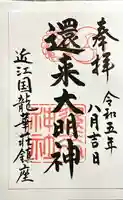 奉拝
令和五年
八月吉日
還来大明神
近江国龍華荘鎮座